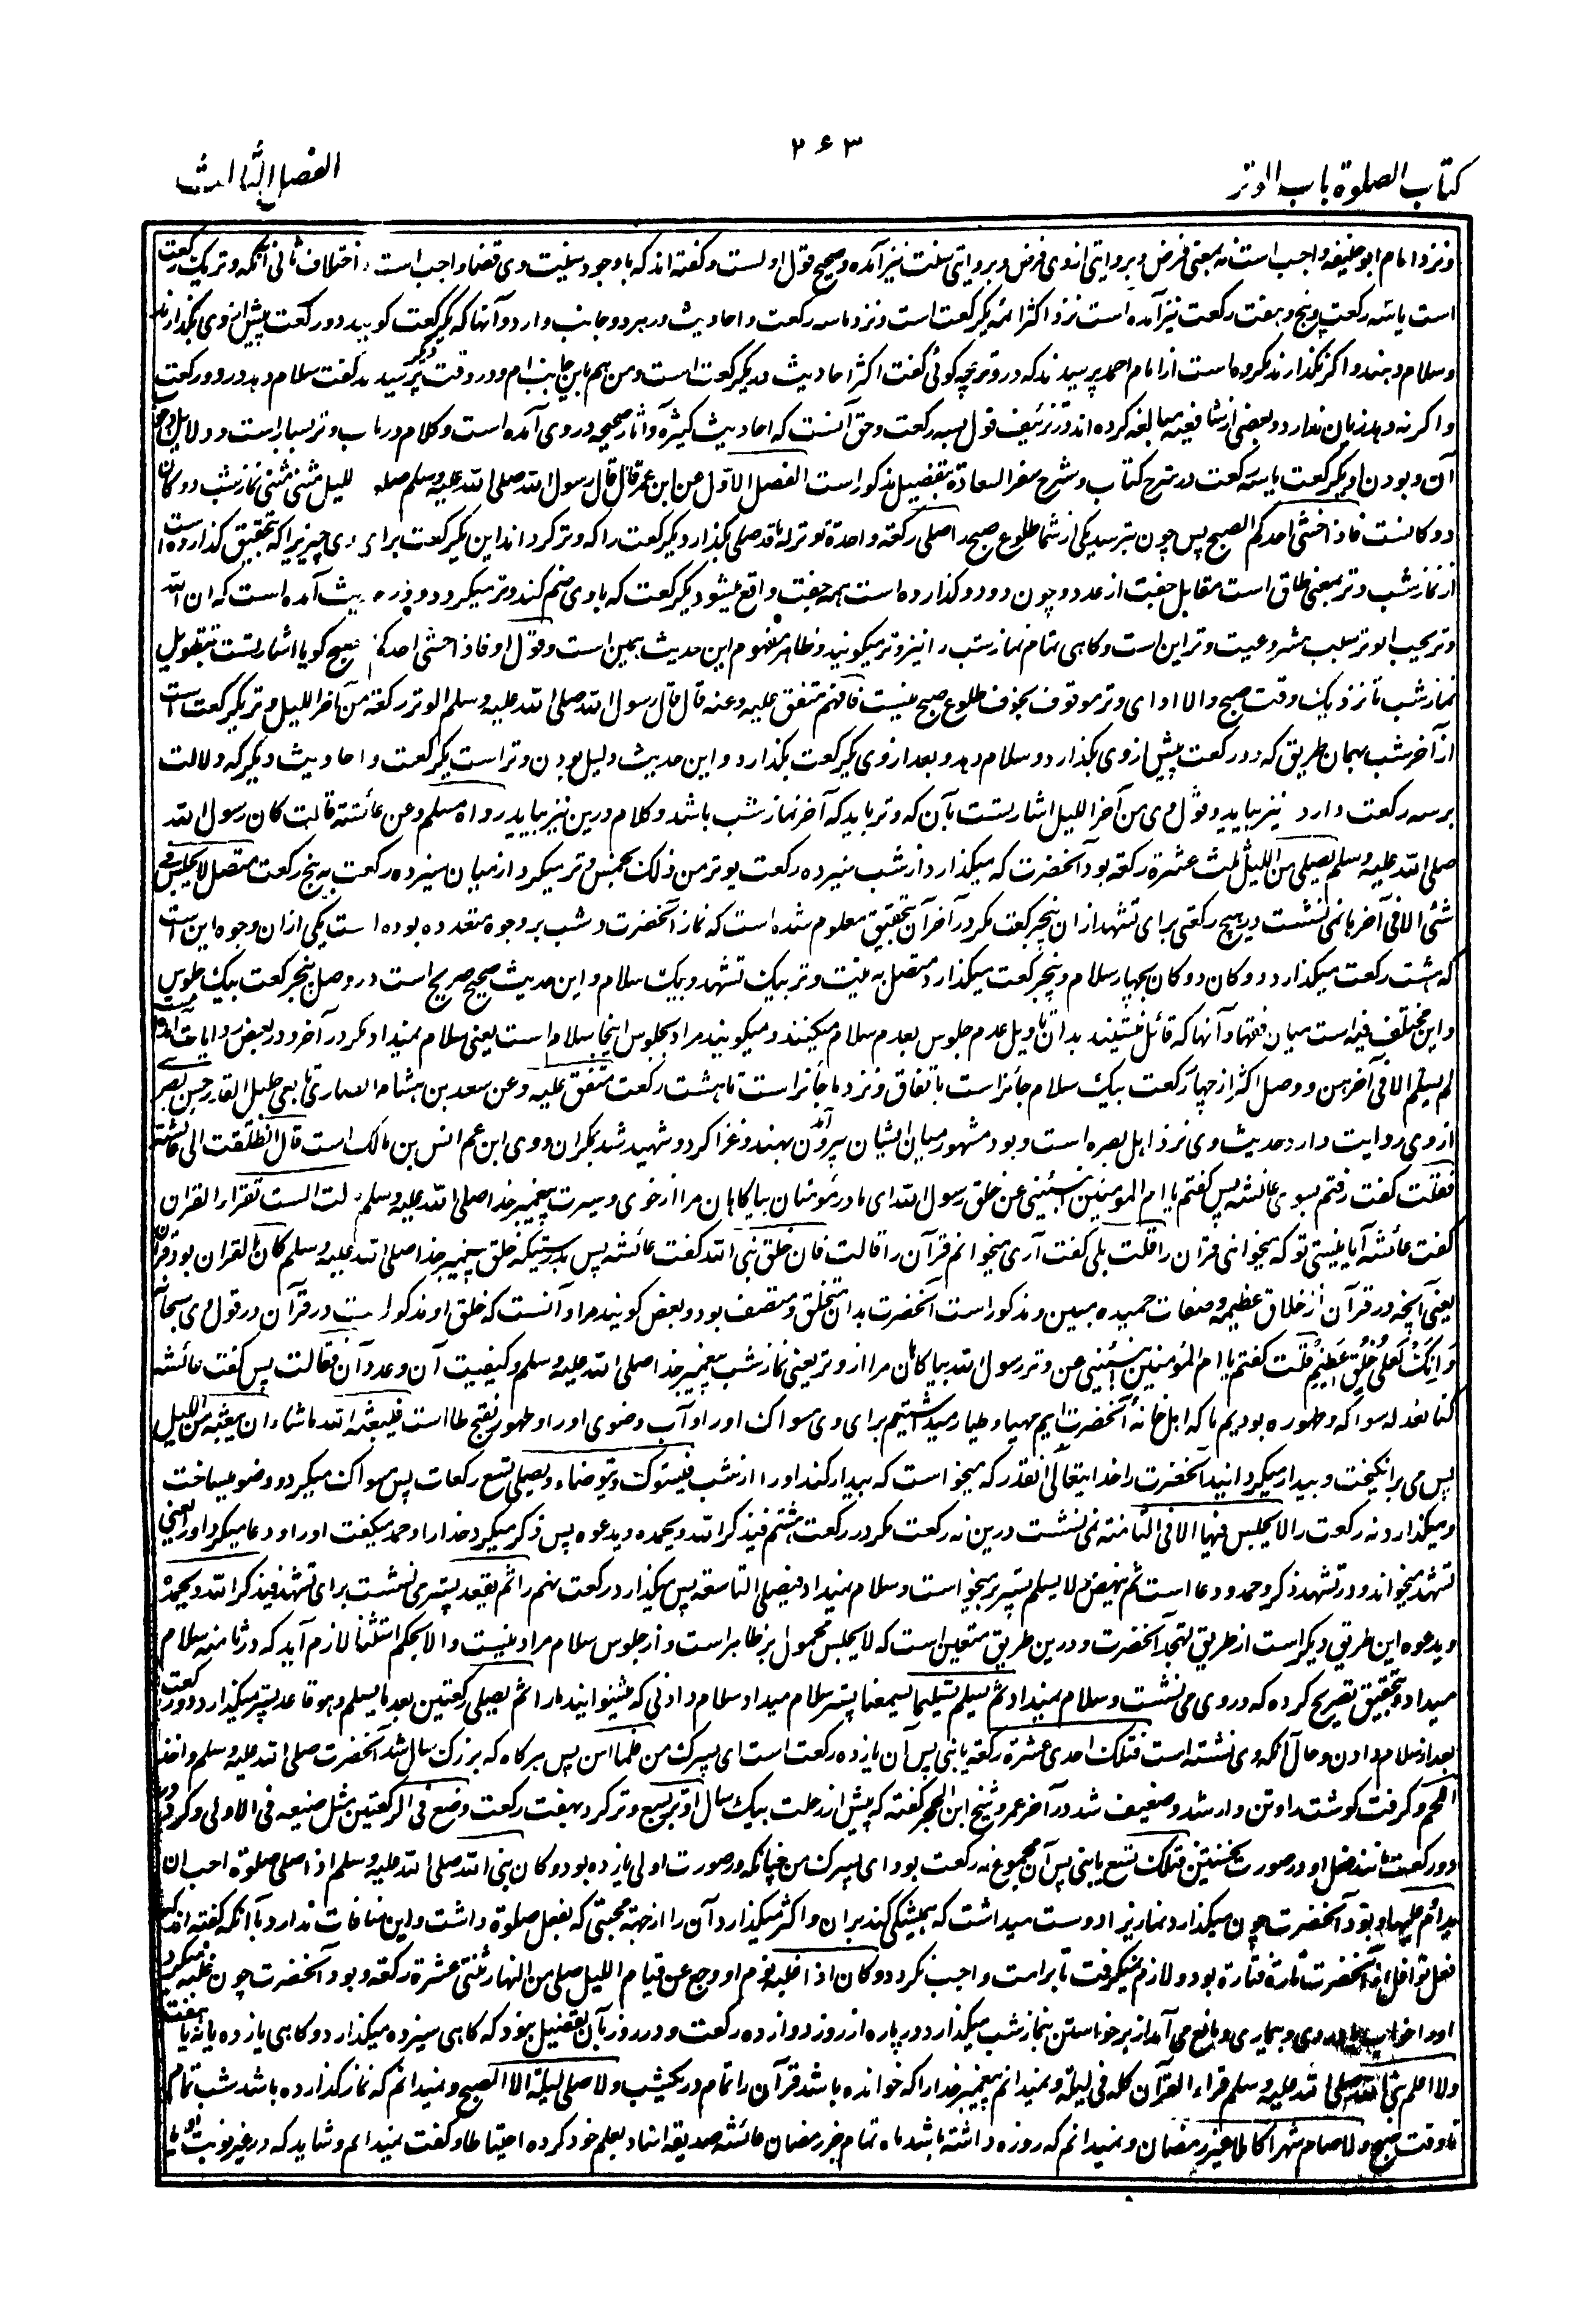 کتاب الصلوة باب الوتر
۲۶۳
الفصل الثالث
ونزد امام ابو حنیفه واجب است نه بمعنی فرض و بروایتی از وی فرض و بروایتی سنت نیز آمده و صحیح قول اولست و گفته اند که با وجود سنیت وی قضا واجب است اختلاف ثانی آنکه وتر یک رکعت
است یا سه رکعت و پنج و هفت رکعت نیز آمده است نزد اکثر ائمه یکرکعت است و نزد ما سه رکعت و احادیث در هر دو جانب وارد و آنها که یکرکعت گویند دو رکعت پیش از وی بگذارند
و سلام دهند و اگر نگذارند مکروه است از امام احمد پرسیدند که در وتر چه گوئی گفت اکثر احادیث در یکرکعت است و من هم باین جانب ام و در وقت دیگر پرسیدند گفت سلام دهد در دو رکعت
و اگر نه دهد زیان ندارد و بعضی از شافعیه مبالغه کرده اند در تزئیف قول بسه رکعت و حق آنست که احادیث کثیره و آثار صحیحه در وی آمده است و کلام در باب وتر بسیار است و دلایل
آن و بودن او یکرکعت یا سه رکعت در شرح کتاب و شرح سفر السعادة بتفصیل مذکور است الفصل الاول عن ابن عمر قال قال رسول الله صلی الله علیه وسلم صلوة اللیل مثنی مثنی نماز شب دوگان
دوگانست فاذا خشی احدکم الصبح پس چون بترسد یکی از شما طلوع صبح را صلی رکعة واحدة توتر له ما قد صلی بگذارد یکرکعت را که وتر گرداند این یکرکعت برای وی چیزیرا که بتحقیق گذارده است
از نماز شب وتر بمعنی طاق است مقابل جفت از عدد و چون دو دو گذارده است همه جفت واقع میشود یکرکعت که با وی ضم کند وتر میگردد و در حدیث آمده است که ان الله
وتر یحب الوتر سبب مشروعیت وتر این است و گاهی تمام نماز شب را نیز وتر میگویند و ظاهر مفهوم این حدیث همین است و قول او فاذا خشی احدکم الصبح گویا اشارتست بتطویل
نماز شب تا نزدیک وقت صبح والا ادای وتر موقوف بخوف طلوع صبح نیست فافهم متفق علیه وعنه قال قال رسول الله صلی الله علیه وسلم الوتر رکعة من آخر اللیل وتر یکرکعت است
از آخر شب بهمان طریق که دو رکعت پیش از وی بگذارد و سلام دهد و بعد از وی یکرکعت بگذارد و این حدیث دلیل بودن وتر است یکرکعت و احادیث دیگر که دلالت
بر سه رکعت دارد نیز بیاید و قول وی من آخر اللیل اشارتست بآن که وتر باید که آخر نماز شب باشد و کلام درین نیز بیاید رواه مسلم وعن عائشة قالت کان رسول الله
صلی الله علیه وسلم یصلی من اللیل ثلث عشرة رکعة بود آنحضرت که میگذارد از شب سیزده رکعت یوتر من ذلک بخمس وتر میکرد از میان سیزده رکعت به پنج رکعت متصل لا یجلس فی
شئ الا فی آخرها نمی نشست در هیچ رکعتی برای تشهد از ان پنجرکعت مگر در آخر آن بتحقیق معلوم شده است که نماز آنحضرت در شب بر وجوه متعدده بوده است یکی از ان وجوه این است
که هشت رکعت میگذارد دوگان دوگان بچهار سلام و پنجرکعت میگذارد متصل به نیت وتر بیک تشهد و بیک سلام و این حدیث صحیح صریح است در وصل پنجرکعت بیک جلوس
و این مختلف فیه است میان فقها و آنها که قائل نیستند بدان تاویل عدم جلوس بعدم سلام میکنند و میگویند مراد بجلوس اینجا سلام است یعنی سلام نمیداد مگر در آخر و در بعض روایات
لم یسلم الا فی آخرهن و وصل اکثر از چهار رکعت بیک سلام جائز است باتفاق و نزد ما جائز است تا هشت رکعت متفق علیه وعن سعد بن هشام الانصاری تابعی جلیل القدر حسن بصری
از وی روایت دارد حدیث وی نزد اهل بصره است و بود مشهور میان ایشان بیرون آمد بهند و غزا کرد و شهید شد بمکران و وی ابن عم انس بن مالک است قال انطلقت الی عائشة
فقلت گفت رفتم بسوی عائشه پس گفتم یا ام المؤمنین انبئینی عن خلق رسول الله ای مادر مؤمنان بیاگاهان مرا از خوی و سیرت پیغمبر خدا صلی الله علیه وسلم قالت الست تقرأ القرآن
گفت عائشه آیا نیستی تو که میخوانی قرآن را قلت بلی گفت آری میخوانم قرآن را قالت فان خلق نبی الله گفت عائشه پس بدرستیکه خلق پیغمبر خدا صلی الله علیه وسلم کان القرآن بود قرآن
یعنی آنچه در قرآن از اخلاق عظیمه و صفات حمیده مبین و مذکور است آنحضرت بدان متخلق و متصف بود و بعض گویند مراد آنست که خلق او مذکور است در قرآن در قول وی سبحانه
وَاِنَّکَ لَعَلٰی خُلُقٍ عَظِیْمٍ قلت گفتم یا ام المؤمنین انبئینی عن وتر رسول الله بیاگاهان مرا از وتر یعنی نماز شب پیغمبر خدا صلی الله علیه وسلم و کیفیت آن و عدد آن فقالت پس گفت عائشه
کنا نعد له سواکه وطهوره بودیم ما که اهل خانه آنحضرت ایم مهیا و طیار میداشتیم برای وی مسواک او را و آب وضوی او را و طهور بفتح طا است فیبعثه الله ما شاء ان یبعثه من اللیل
پس می برانگیخت و بیدار میگردانید آنحضرت را خدایتعالی آنقدر که میخواست که بیدار کند او را از شب فیتسوک ویتوضأ ویصلی تسع رکعات پس مسواک میکرد و وضو میساخت
و میگذارد نه رکعت را لا یجلس فیها الا فی الثامنة نمی نشست درین نه رکعت مگر در رکعت هشتم فیذکر الله ویحمده ویدعوه پس ذکر میکرد خدا را و حمد میگفت او را و دعا میکرد او را یعنی
تشهد میخواند و در تشهد ذکر و حمد و دعا است ثم ینهض ولا یسلم پستر بر میخاست و سلام نمیداد فیصلی التاسعة پس میگذارد رکعت نهم را ثم یقعد پستر می نشست برای تشهد فیذکر الله ویحمده
ویدعوه این طریق دیگر است از طریق تهجد آنحضرت و درین طریق متعین است که لا یجلس محمول بر ظاهر است و از جلوس سلام مراد نیست والا بحکم استثنا لازم آید که در ثامنه سلام
میداد و بتحقیق تصریح کرده که در وی می نشست و سلام نمیداد ثم یسلم تسلیما یسمعنا پستر سلام میداد سلام دادنی که میشنوانید ما را ثم یصلی رکعتین بعد ما یسلم وهو قاعد پستر میگذارد دو رکعت
بعد از سلام دادن و حال آنکه وی نشسته است فتلک احدی عشرة رکعة یا بنی پس آن یازده رکعت است ای پسرک من فلما اسن پس هرگاه که بزرگ سال شد آنحضرت صلی الله علیه وسلم واخذ
اللحم و گرفت گوشت را و تن دار شد و ضعیف شد در آخر عمر و شیخ ابن الحجر گفته که پیش از رحلت بیک سال اوتر بسبع وتر کرد بهفت رکعت وصنع فی الرکعتین مثل صنیعه فی الاولی و کرد در
دو رکعت مانند فعل او در صورت نخستین فتلک تسع یا بنی پس آن مجموع نه رکعت بود ای پسرک من چنانکه در صورت اولی یازده بود وکان نبی الله صلی الله علیه وسلم اذا صلی صلوة احب ان
یداوم علیها و بود آنحضرت چون میگذارد نمازیرا دوست میداشت که همیشگی کند بران و اکثر میگذارد آن را از جهة محبتی که بفعل صلوة داشت و این منافات ندارد با آنکه گفته اند که
فعل نوافل از آنحضرت تارة فتارة بود و لازم نمیگرفت تا بر امت واجب نگردد وکان اذا غلبه نوم او وجع عن قیام اللیل صلی من النهار ثنتی عشرة رکعة و بود آنحضرت چون غلبه میکرد
او را خواب یا دردی و بیماری و مانع می آمد از برخاستن بنماز شب میگذارد در پاره از روز دوازده رکعت و در روز بآن تفصیل نبود که گاهی سیزده میگذارد و گاهی یازده یا نه یا هفت
ولا اعلم نبی الله صلی الله علیه وسلم قرأ القرآن کله فی لیلة و نمیدانم پیغمبر خدا را که خوانده باشد قرآن را تمام در یکشب ولا صلی لیلة الی الصبح و نمیدانم که نماز گذارده باشد شب تمام
تا وقت صبح ولا صام شهرا کاملا غیر رمضان و نمیدانم که روزه داشته باشد ماه تمام جز رمضان عائشه صدیقه اسناد بعلم خود کرده احتیاطا و گفت نمیدانم و شاید که در غیر نوبت او